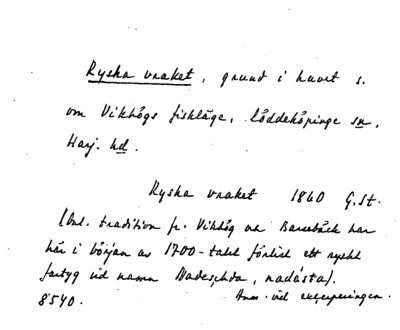 Ryska vraket, grund i havet s.
om Vikhögs fiskläge, Löddeköpinge sn,
Harj. hd.
Ryska vraket 1860 G.St.
(Enl. tradition fr. Vikhög och Barsebäck har
här i början av 1700-talet förlist ett ryskt
fartyg vid namn Nadeschda, nadásta).
8540. Anm. vid excerperingen.